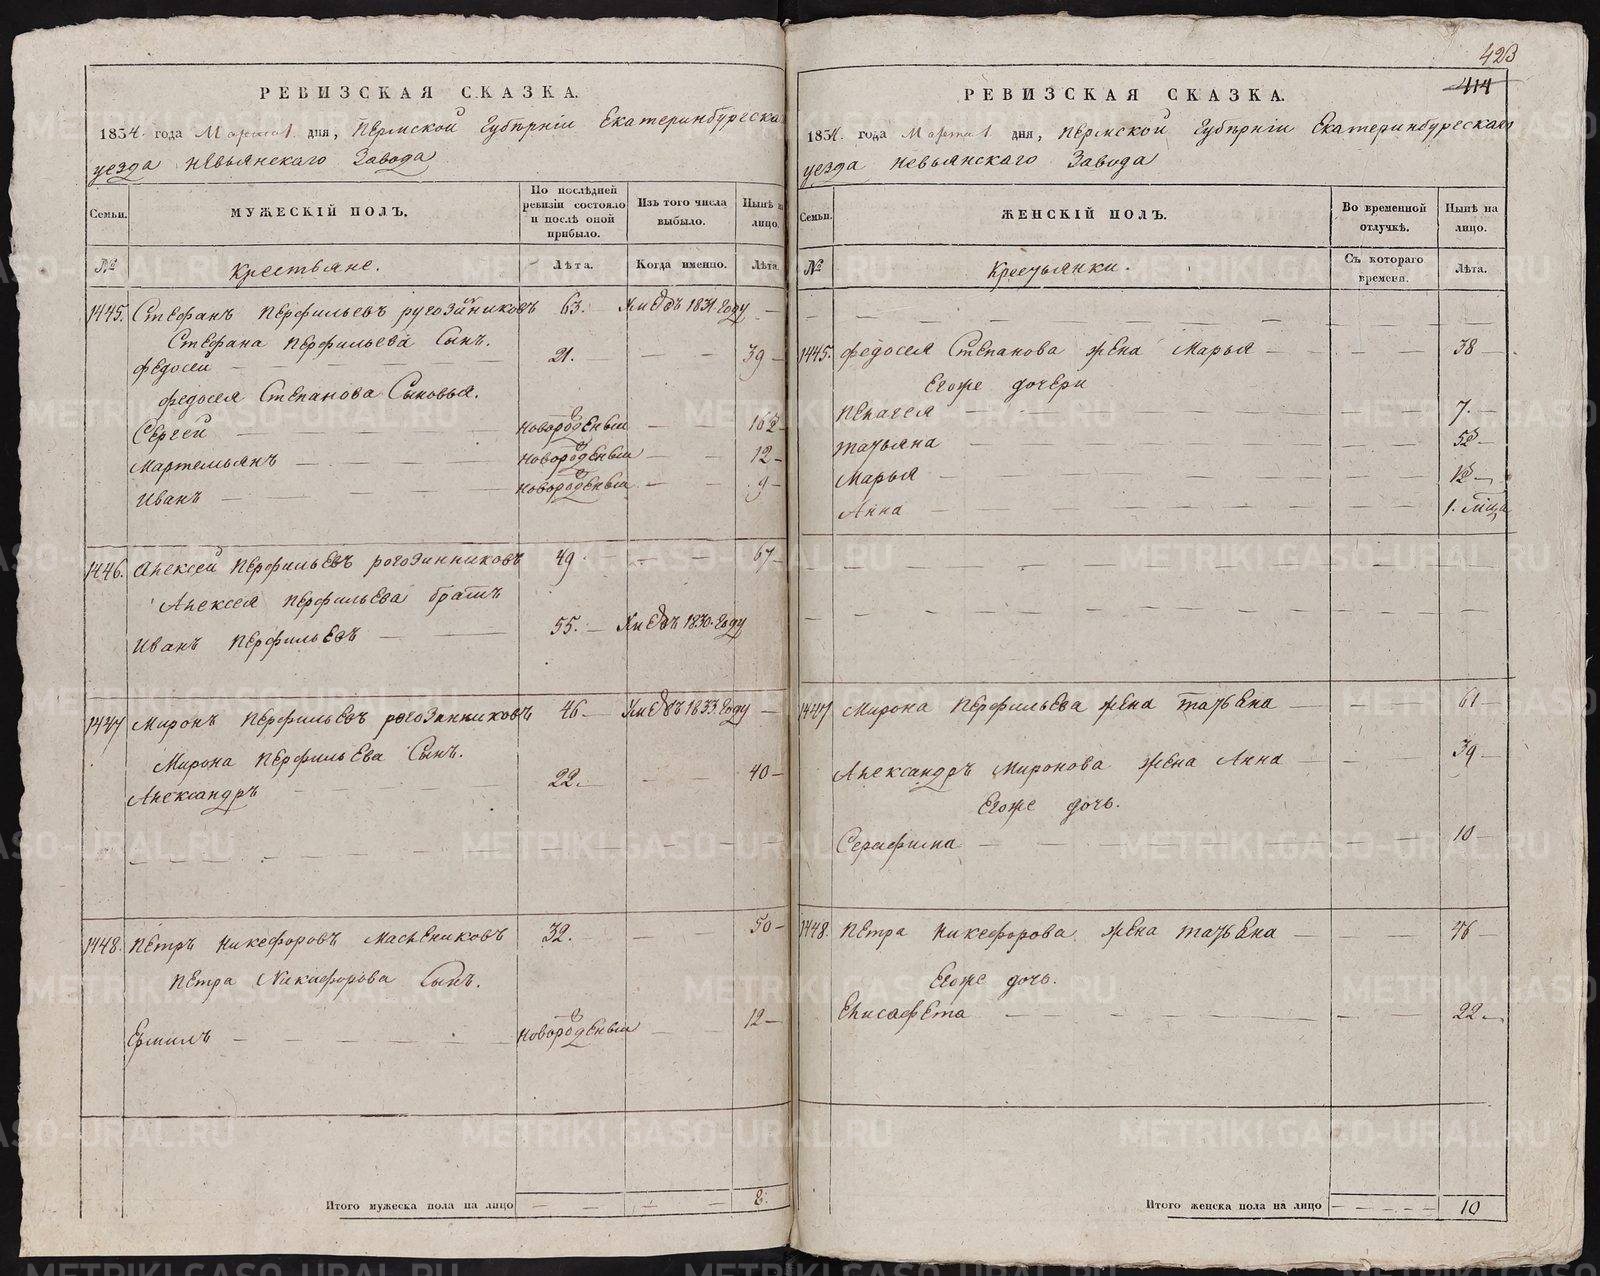 РЕВИЗСКАЯ СКАЗКА.
1834. года Марта 1 дня, Пермской Губѣрніи Екатеринбурскаго
уезда Невьянскаго Завода
Семьи. МУЖЕСКІЙ ПОЛЪ. По послѣдней ревизіи состояло и послѣ оной прибыло. Изъ того числа выбыло. Нынѣ на лицо.
№ Крестьяне. Лѣта. Когда именно. Лѣта.
1445. Стефанъ Перфильевъ 63. 1831 Году —
Стефана Перфильева Сынъ.
Федосей — 21. — — 39 —
федосея Степанова Сыновья.
Сергей — новорожденый — — 16
Мартемьянъ — новорожденый — — 12 —
Иванъ — новорожденый — — 9 —
1446. Алексей Перфильевъ рогозинниковъ 49 — — 67 —
Алексея Перфильева братъ
Иванъ Перфильевъ — 55. — 1830 Году
1447 Миронъ Перфильевъ рогозинниковъ 46. — 1833 Году —
Мирона Перфильева Сынъ.
Александръ — 22. — — 40 —
1448. Петръ Никефоровъ Маслениковъ 32. — — 50 —
Петра Никифорова Сынъ.
Ермилъ — новорожденый — — 12 —
Итого мужеска пола на лицо — — — 8.
423
414
РЕВИЗСКАЯ СКАЗКА.
1834. года Марта 1 дня, Пермской Губѣрніи Екатеринбурескаго
уезда Невьянскаго Завода
Семьи. ЖЕНСКІЙ ПОЛЪ. Во временной отлучкѣ. Нынѣ на лицо.
№ Крестьянки. Съ котораго времени. Лѣта.
1445. федосея Степанова жена Марья — — — 38 —
Егоже дочери
Пелагея — — — 7. —
татьяна — — —
Марья — — —
Анна — — — 1.
1447 Мирона Перфильева жена татьяна — — — 61 —
Александръ Миронова жена Анна — — — 39 —
Егоже дочь.
Серафима — — — 10 —
1448. Петра Никефорова жена татьяна — — — 46 —
Егоже дочь.
Елисафета — — — 22 —
Итого женска пола на лицо — — — 10
METRIKI.GASO-URAL.RU